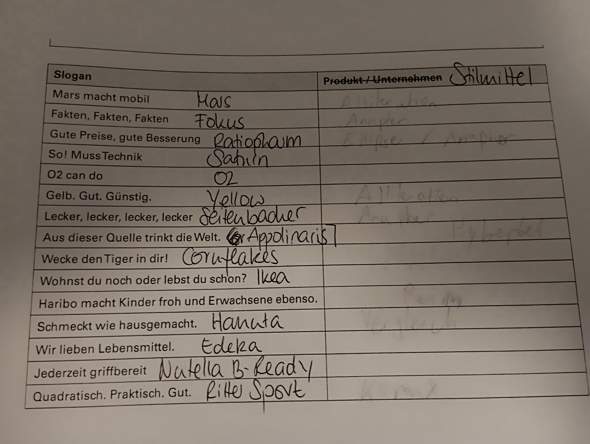 Slogan Produkt / Unternehmen Stilmittel
Mars macht mobil Mars
Fakten, Fakten, Fakten Fokus Anapher
Gute Preise, gute Besserung Ratiopharm / Anapher
So! MussTechnik Saturn
O2 can do O2
Gelb. Gut. Günstig. Yellow
Lecker, lecker, lecker, lecker Seitenbacher Anapher
Aus dieser Quelle trinkt die Welt. Appolinaris
Wecke den Tiger in dir! Cornflakes
Wohnst du noch oder lebst du schon? Ikea
Haribo macht Kinder froh und Erwachsene ebenso.
Schmeckt wie hausgemacht. Hanuta Vergleich
Wir lieben Lebensmittel. Edeka
Jederzeit griffbereit Nutella B-Ready
Quadratisch. Praktisch. Gut. Ritter Sport